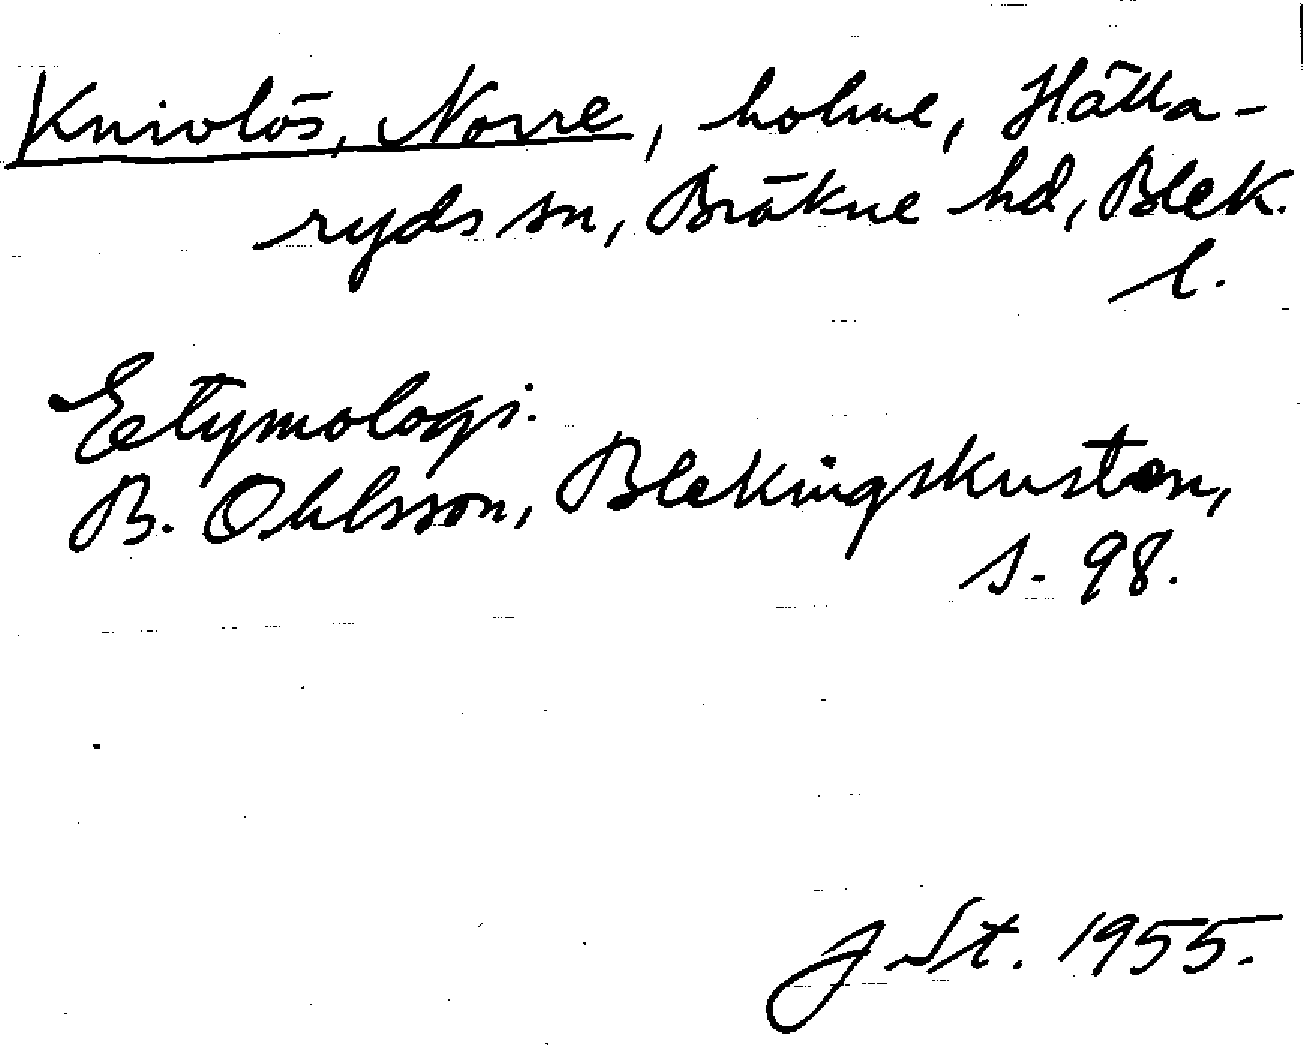 Knivlös, Norre, holme, Hälla-
ryds sn, Bräkne hd, Blek.
l.
Eetymologi.
B. Ohlsson, Blekingskusten,
s. 98.
J St. 1955.